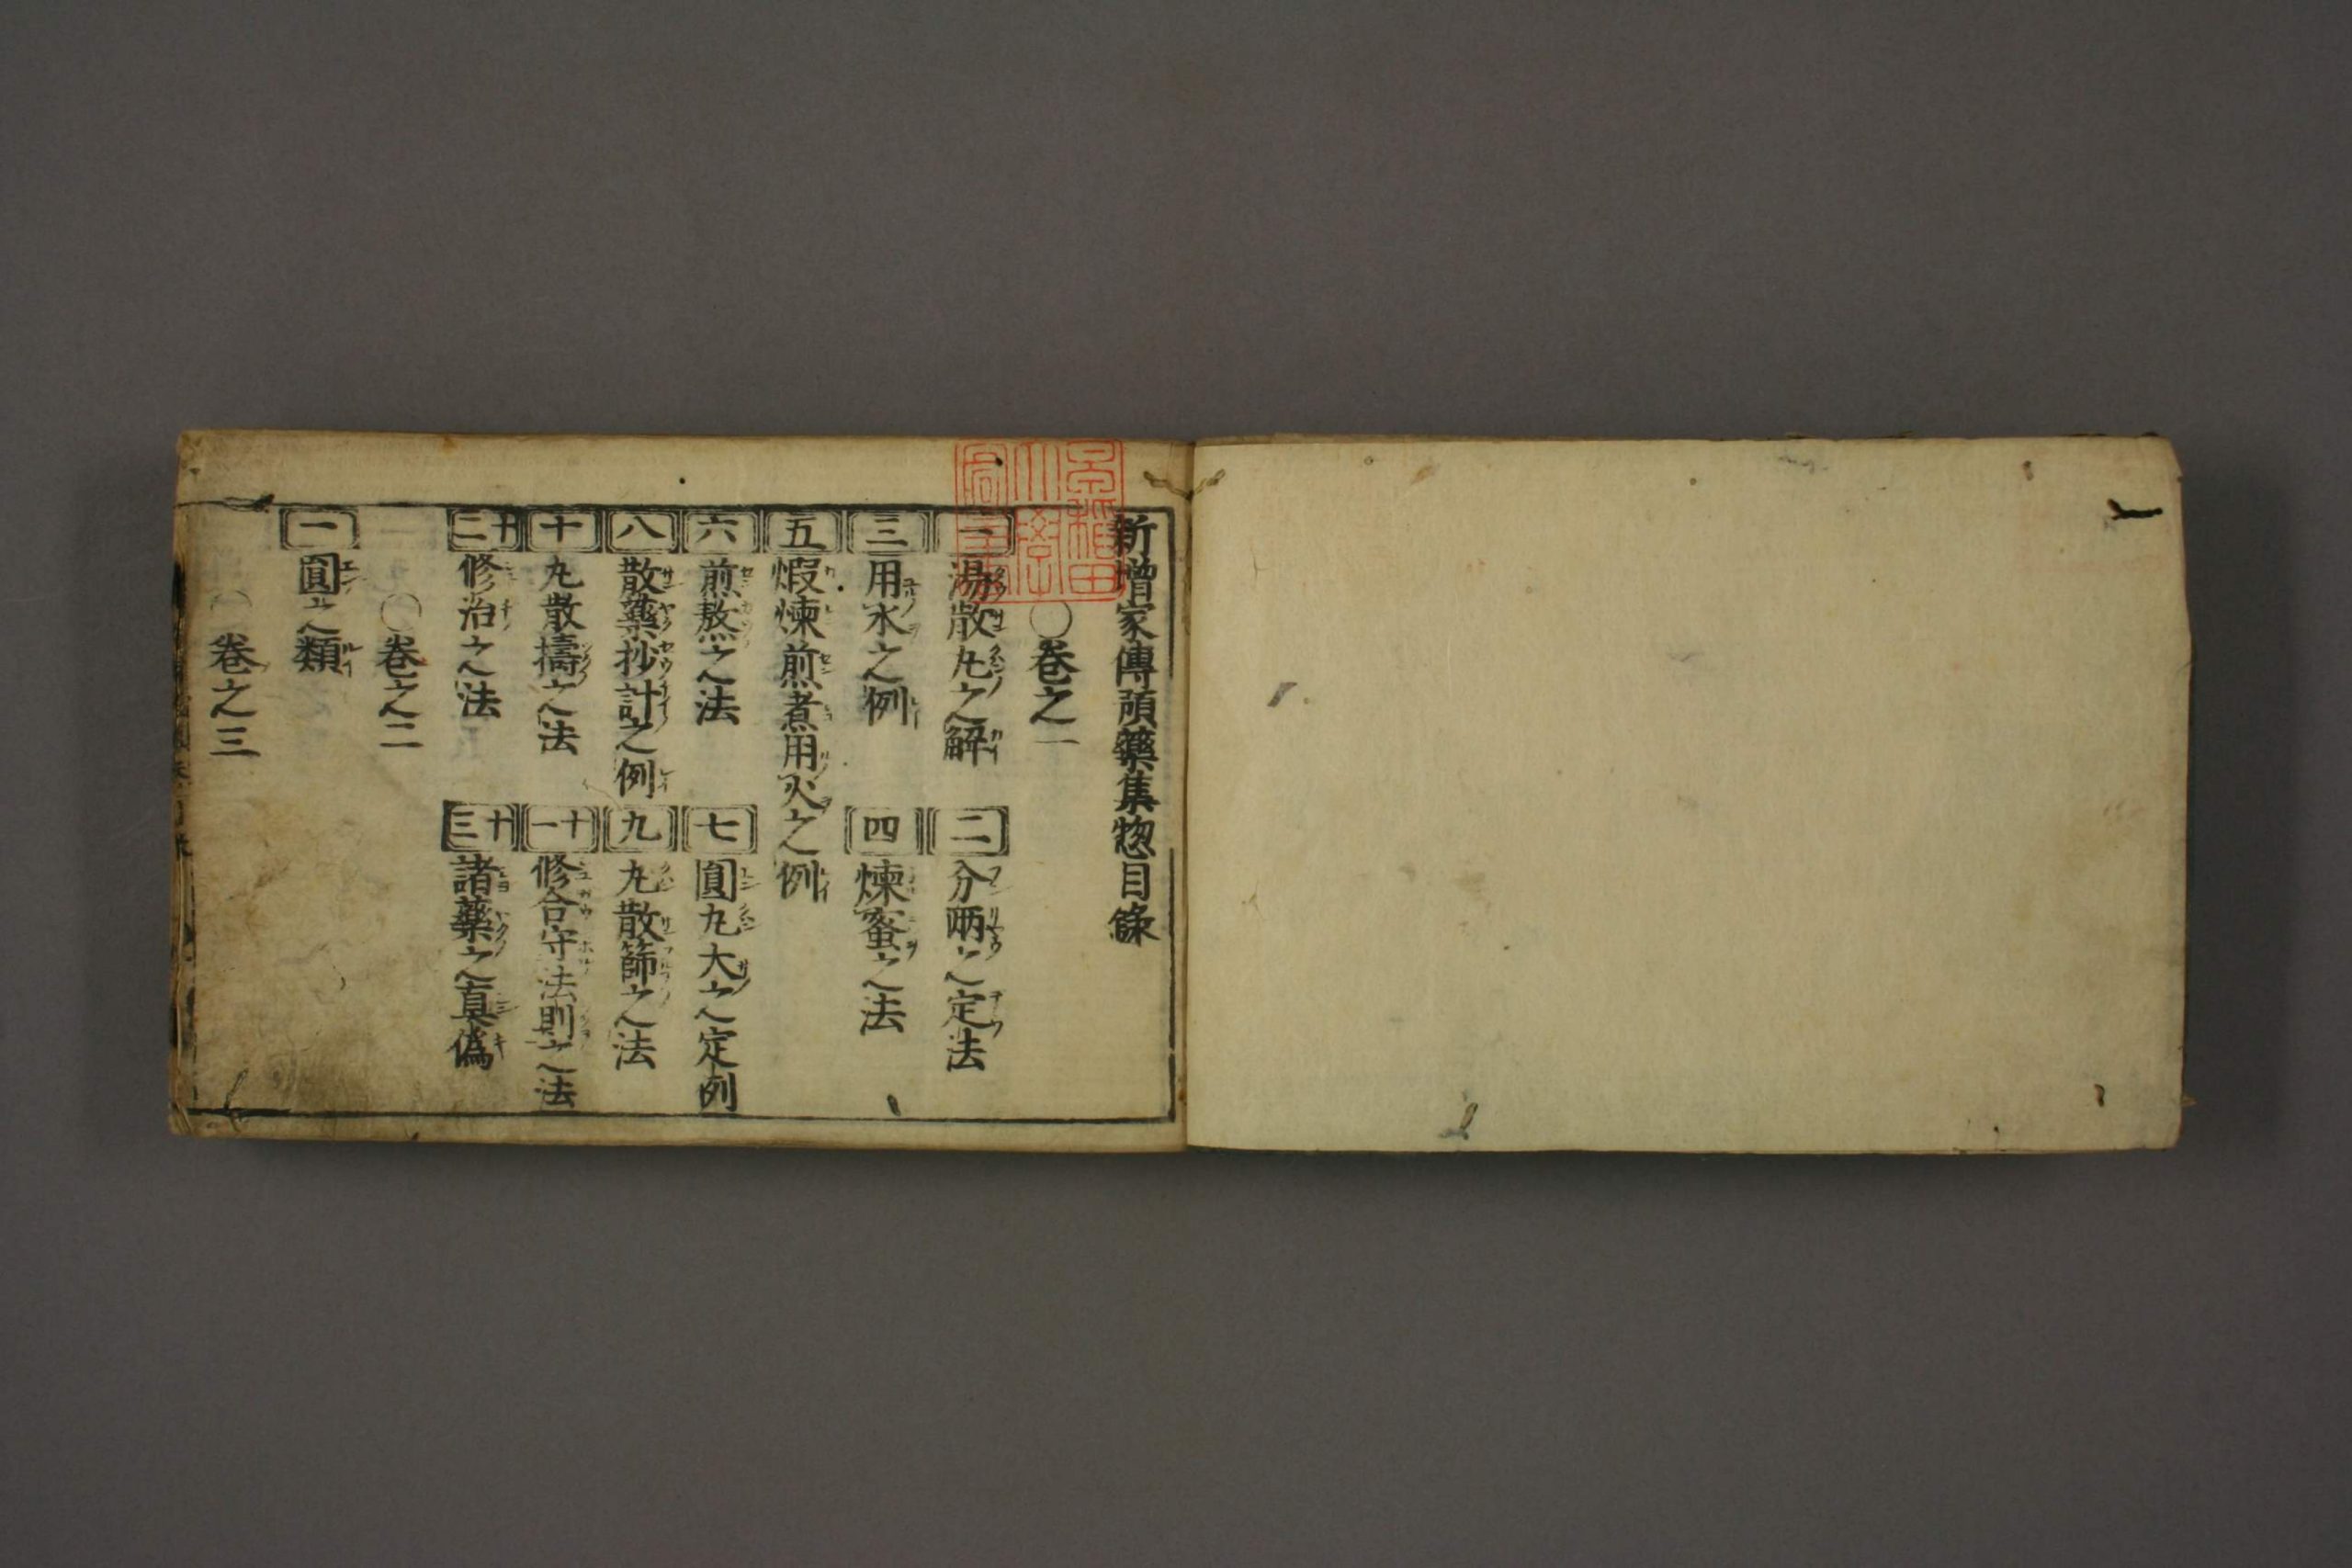 新增家傳預藥集惣目錄
○卷之一
一 湯散丸之解 二 分兩之定法
三 用水之例 四 煉蜜之法
五 煆煉煎煮用火之例
六 煎熬之法 七 圓丸大之定例
八 散藥抄計之例 九 丸散篩之法
十 丸散擣之法 十一 修合守法則之法
十二 修治之法 十三 諸藥之真偽
○卷之二
一 圓之類
○卷之三
早稲田大學圖書